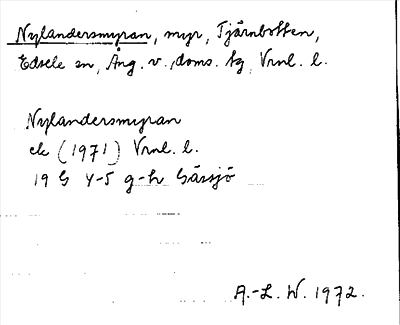 Nylandersmyran, myr, Tjärnbotten,
Edsele sn, Ång. v. doms. tg, Vrnl. l.
Nylandersmyran
ek (1971) Vrnl. l.
19 G 4-5 g-h Gässjö
A.-L. W. 1972.